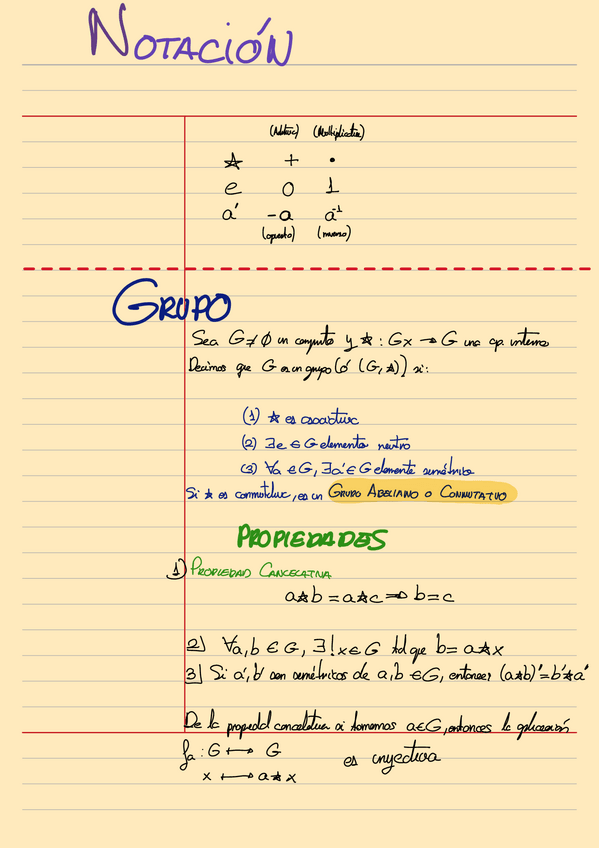 NOTACIÓN
(Aditiva) (Multiplicativa)
☆ + •
e 0 1
a' -a a⁻¹
(opuesto) (inverso)
GRUPO
Sea G ≠ ∅ un conjunto y ☆ : Gx → G una op. interna
Decimos que G es un grupo (ó (G, ☆)) si:
(1) ☆ es asociativa
(2) ∃e ∈ G elemento neutro
(3) ∀a ∈ G, ∃a' ∈ G elemento simétrico
Si ☆ es conmutativa, es un GRUPO ABELIANO O CONMUTATIVO
PROPIEDADES
1) PROPIEDAD CANCELATIVA
a☆b = a☆c ⇒ b = c
2) ∀a,b ∈ G, ∃! x ∈ G tal que b = a☆x
3) Si a', b' son simétricos de a,b ∈ G, entonces (a☆b)' = b'☆a'
De la propiedad cancelativa si tomamos a ∈ G, entonces la aplicación
fa : G ⟼ G es inyectiva
x ⟼ a☆x